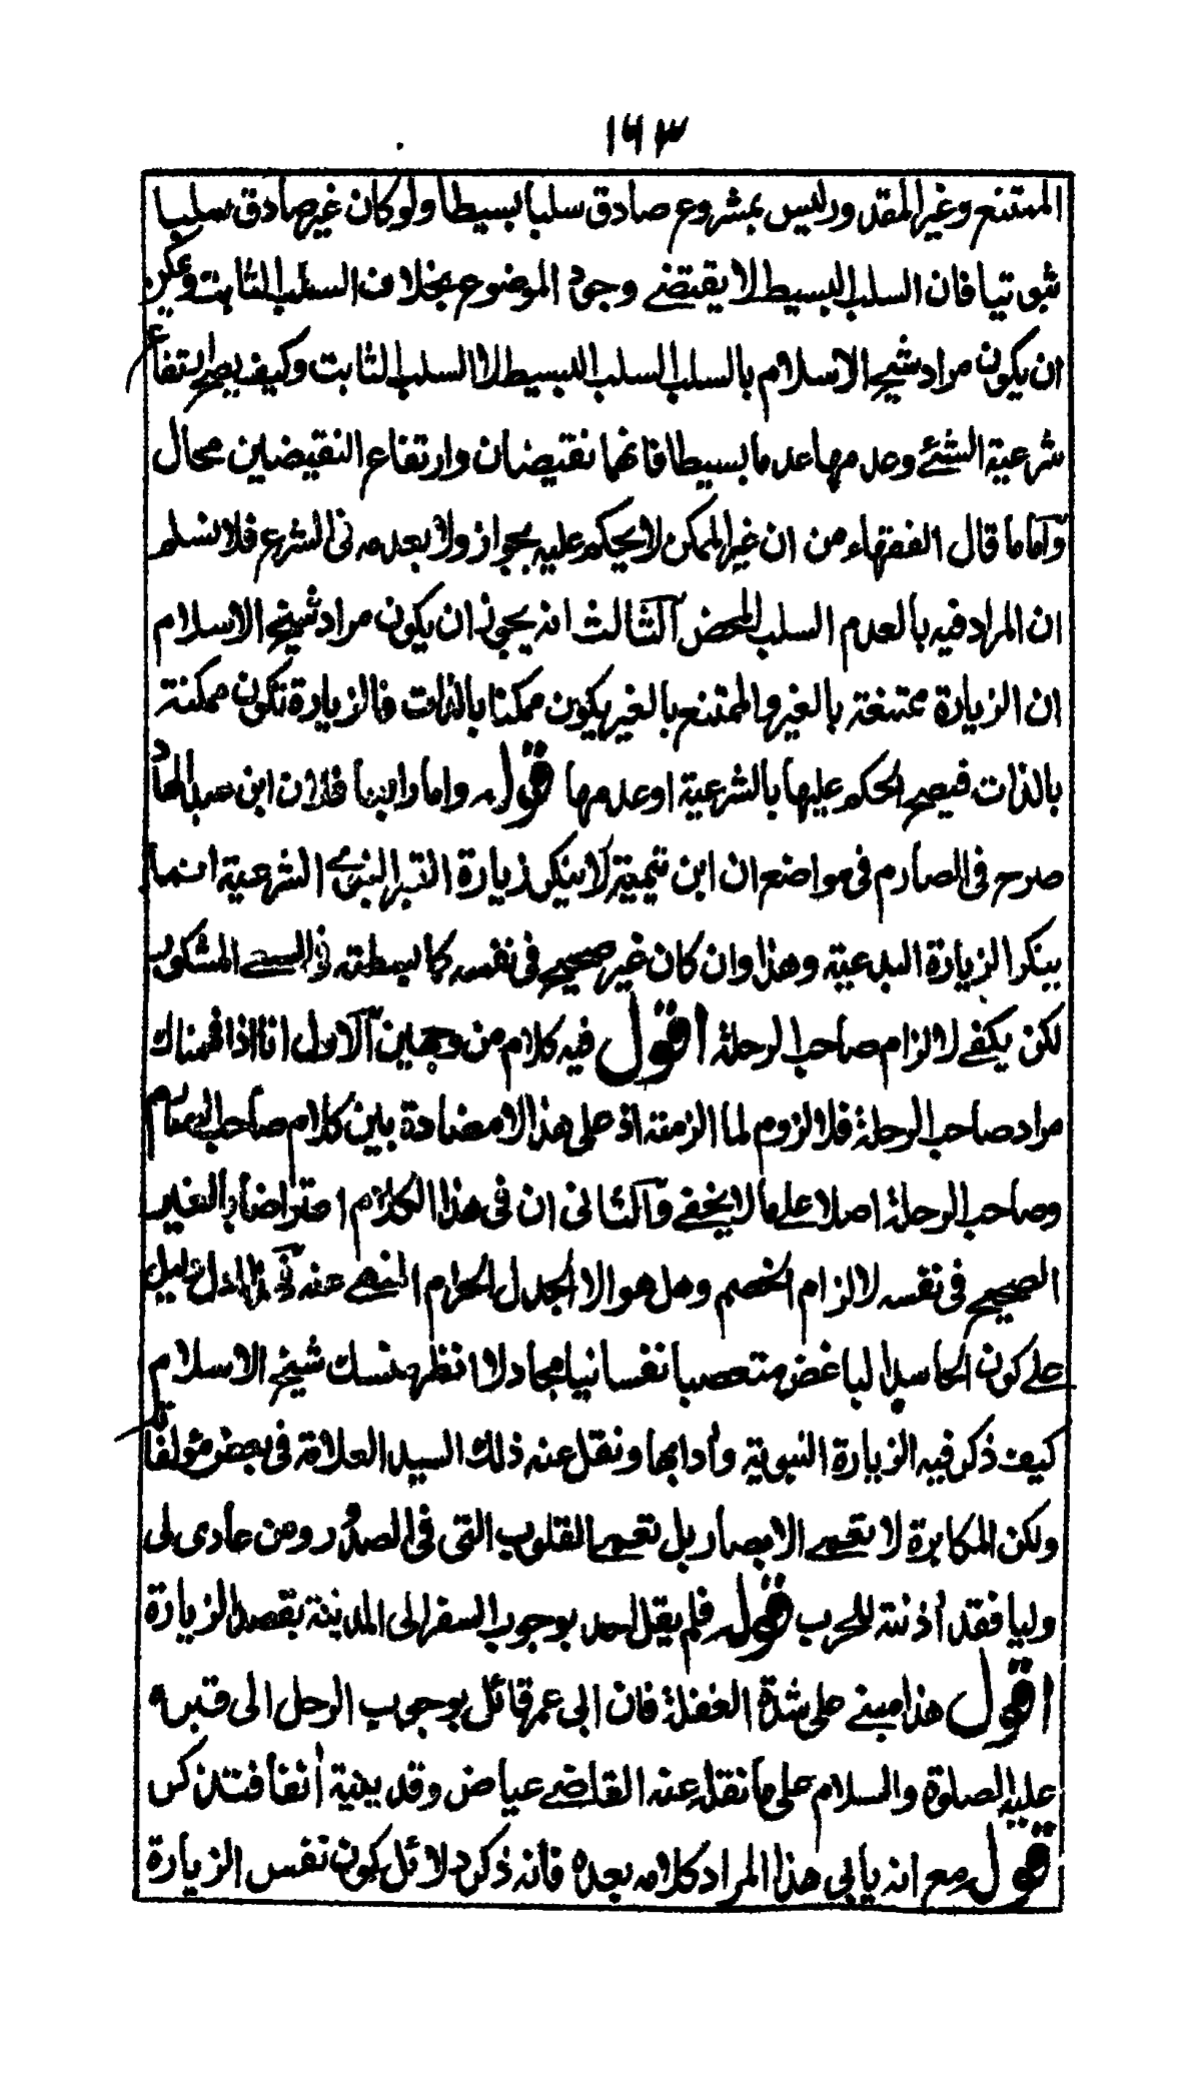 ١٦٣
الممتنع وغير المقدور ليس بمشروع صادق سلبا بسيطا ولو كان غير صادق سلبا
ثبوتيا فان السلب البسيط لا يقتضے وجود الموضوع بخلاف السلب الثابت ويمكن
ان يكون مراد شيخ الاسلام بالسلب السلب البسيط لا السلب الثابت وكيف يصح ارتفاع
شرعية الشئے وعدمها عدما بسيطا فانهما نقيضان وارتفاع النقيضين محال
وأما ما قال الفقهاء من ان غير الممكن لا يحكم عليه بجواز ولا بعدمه فى الشرع فلا نسلم
ان المراد فيه بالعدم السلب المحض الثالث انه يجوز ان يكون مراد شيخ الاسلام
ان الزيارة ممتنعة بالغير والممتنع بالغير يكون ممكنا بالذات فالزيارة تكون ممكنة
بالذات فيصح الحكم عليها بالشرعية او عدمها قوله واما رابعا فلان ابن عبد الهاد
صرح فى الصارم فى مواضع ان ابن تيمية لا ينكر زيارة القبر النبوے الشرعية انما
ينكر الزيارة البدعية وهذا وان كان غير صحيح فى نفسه كما بسطته فى السعے المشكور
لكن يكفے لالزام صاحب الرحلة اقول فيه كلام من وجهين الاول انا اذا فهمناك
مراد صاحب الرحلة فلا لزوم لما الزمته اذ على هذا لا مضادة بين كلام صاحب الصارم
وصاحب الرحلة اصلا على ما لا يخفے والثانى ان فى هذا الكلام اعتراضا بالغير
الصحيح فى نفسه لالزام الخصم وهل هو الا الجدل الحرام المنهے عنه فى هذا ادل دليل
على كون الحاسد الباغض متعصبا نفسانيا مجادلا انظر منسك شيخ الاسلام
كيف ذكر فيه الزيارة النبوية وأدابها ونقل عنه ذلك السيد العلامة فى بعض مؤلفاته
ولكن المكابرة لا تعمے الابصار بل تعمے القلوب التى فى الصدور ومن عادى لى
وليا فقد أذنته للحرب قوله فلم يقل احد بوجوب السفر الى المدينة بقصد الزيارة
اقول هذا مبنے على شدة الغفلة فان ابى عمر قائل بوجوب الرحل الى قبره
عليه الصلوة والسلام على ما نقله عنه القاضے عياض وقد بينته أنفا فتذكر
قوله مع انه يابى هذا المراد كلامه بعده فانه ذكر دلائل كون نفس الزيارة